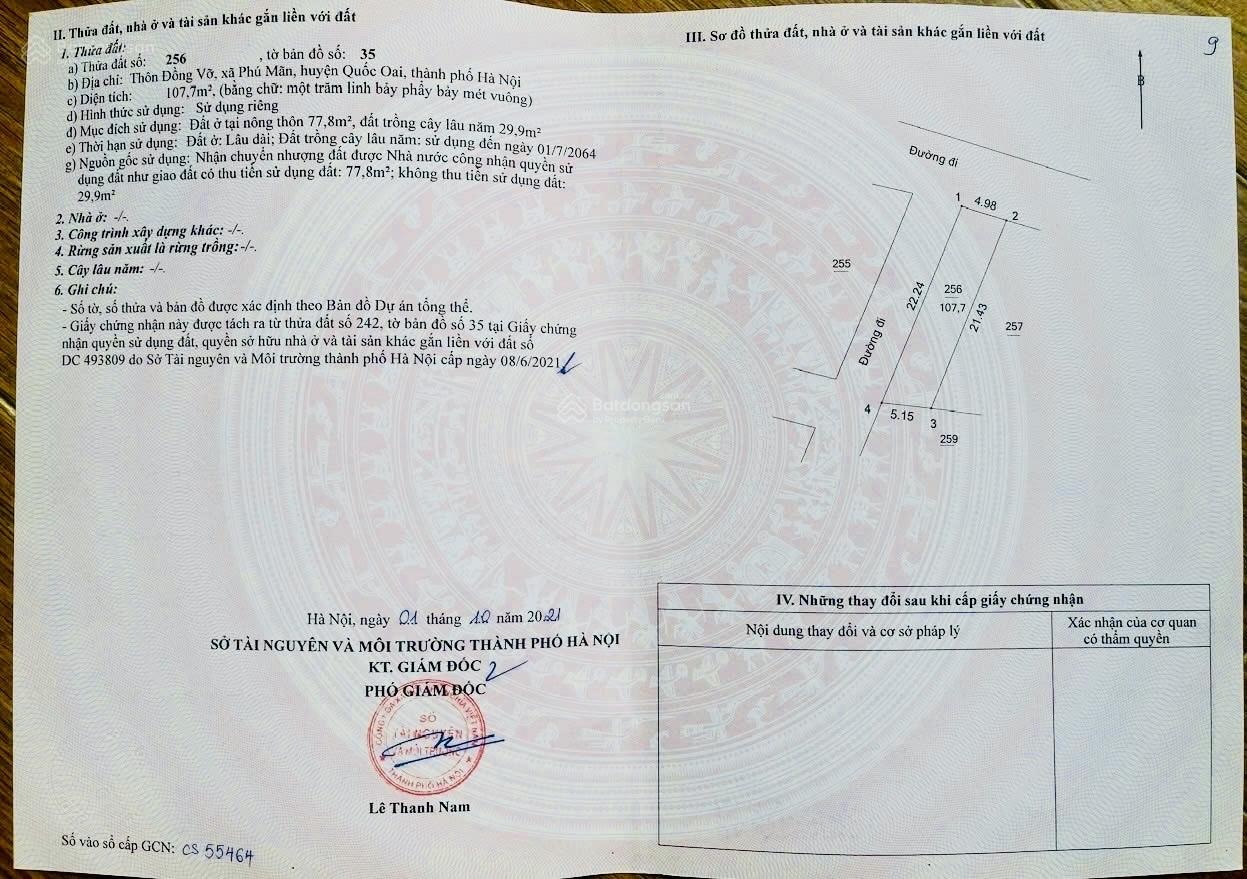 II. Thửa đất, nhà ở và tài sản khác gắn liền với đất
1. Thửa đất:
a) Thửa đất số: 256 , tờ bản đồ số: 35
b) Địa chỉ: Thôn Đồng Vỡ, xã Phú Mãn, huyện Quốc Oai, thành phố Hà Nội
c) Diện tích: 107,7m², (bằng chữ: một trăm linh bảy phẩy bảy mét vuông)
d) Hình thức sử dụng: Sử dụng riêng
đ) Mục đích sử dụng: Đất ở tại nông thôn 77,8m², đất trồng cây lâu năm 29,9m²
e) Thời hạn sử dụng: Đất ở: Lâu dài; Đất trồng cây lâu năm: sử dụng đến ngày 01/7/2064
g) Nguồn gốc sử dụng: Nhận chuyển nhượng đất được Nhà nước công nhận quyền sử
dụng đất như giao đất có thu tiền sử dụng đất: 77,8m²; không thu tiền sử dụng đất:
29,9m²
2. Nhà ở: -/-.
3. Công trình xây dựng khác: -/-.
4. Rừng sản xuất là rừng trồng: -/-.
5. Cây lâu năm: -/-.
6. Ghi chú:
- Số tờ, số thửa và bản đồ được xác định theo Bản đồ Dự án tổng thể.
- Giấy chứng nhận này được tách ra từ thửa đất số 242, tờ bản đồ số 35 tại Giấy chứng
nhận quyền sử dụng đất, quyền sở hữu nhà ở và tài sản khác gắn liền với đất số
DC 493809 do Sở Tài nguyên và Môi trường thành phố Hà Nội cấp ngày 08/6/2021
Hà Nội, ngày 01 tháng 10 năm 2021
SỞ TÀI NGUYÊN VÀ MÔI TRƯỜNG THÀNH PHỐ HÀ NỘI
KT. GIÁM ĐỐC
PHÓ GIÁM ĐỐC
SỞ
TÀI NGUYÊN
VÀ MÔI TRƯỜNG
THÀNH PHỐ HÀ NỘI
Lê Thanh Nam
Số vào sổ cấp GCN: CS 55464
III. Sơ đồ thửa đất, nhà ở và tài sản khác gắn liền với đất
9
B
Đường đi
1
4.98
2
255
22.24
256
107,7
21.43
257
Đường đi
4
5.15
3
259
Batdongsan
IV. Những thay đổi sau khi cấp giấy chứng nhận
Nội dung thay đổi và cơ sở pháp lý
Xác nhận của cơ quan
có thẩm quyền